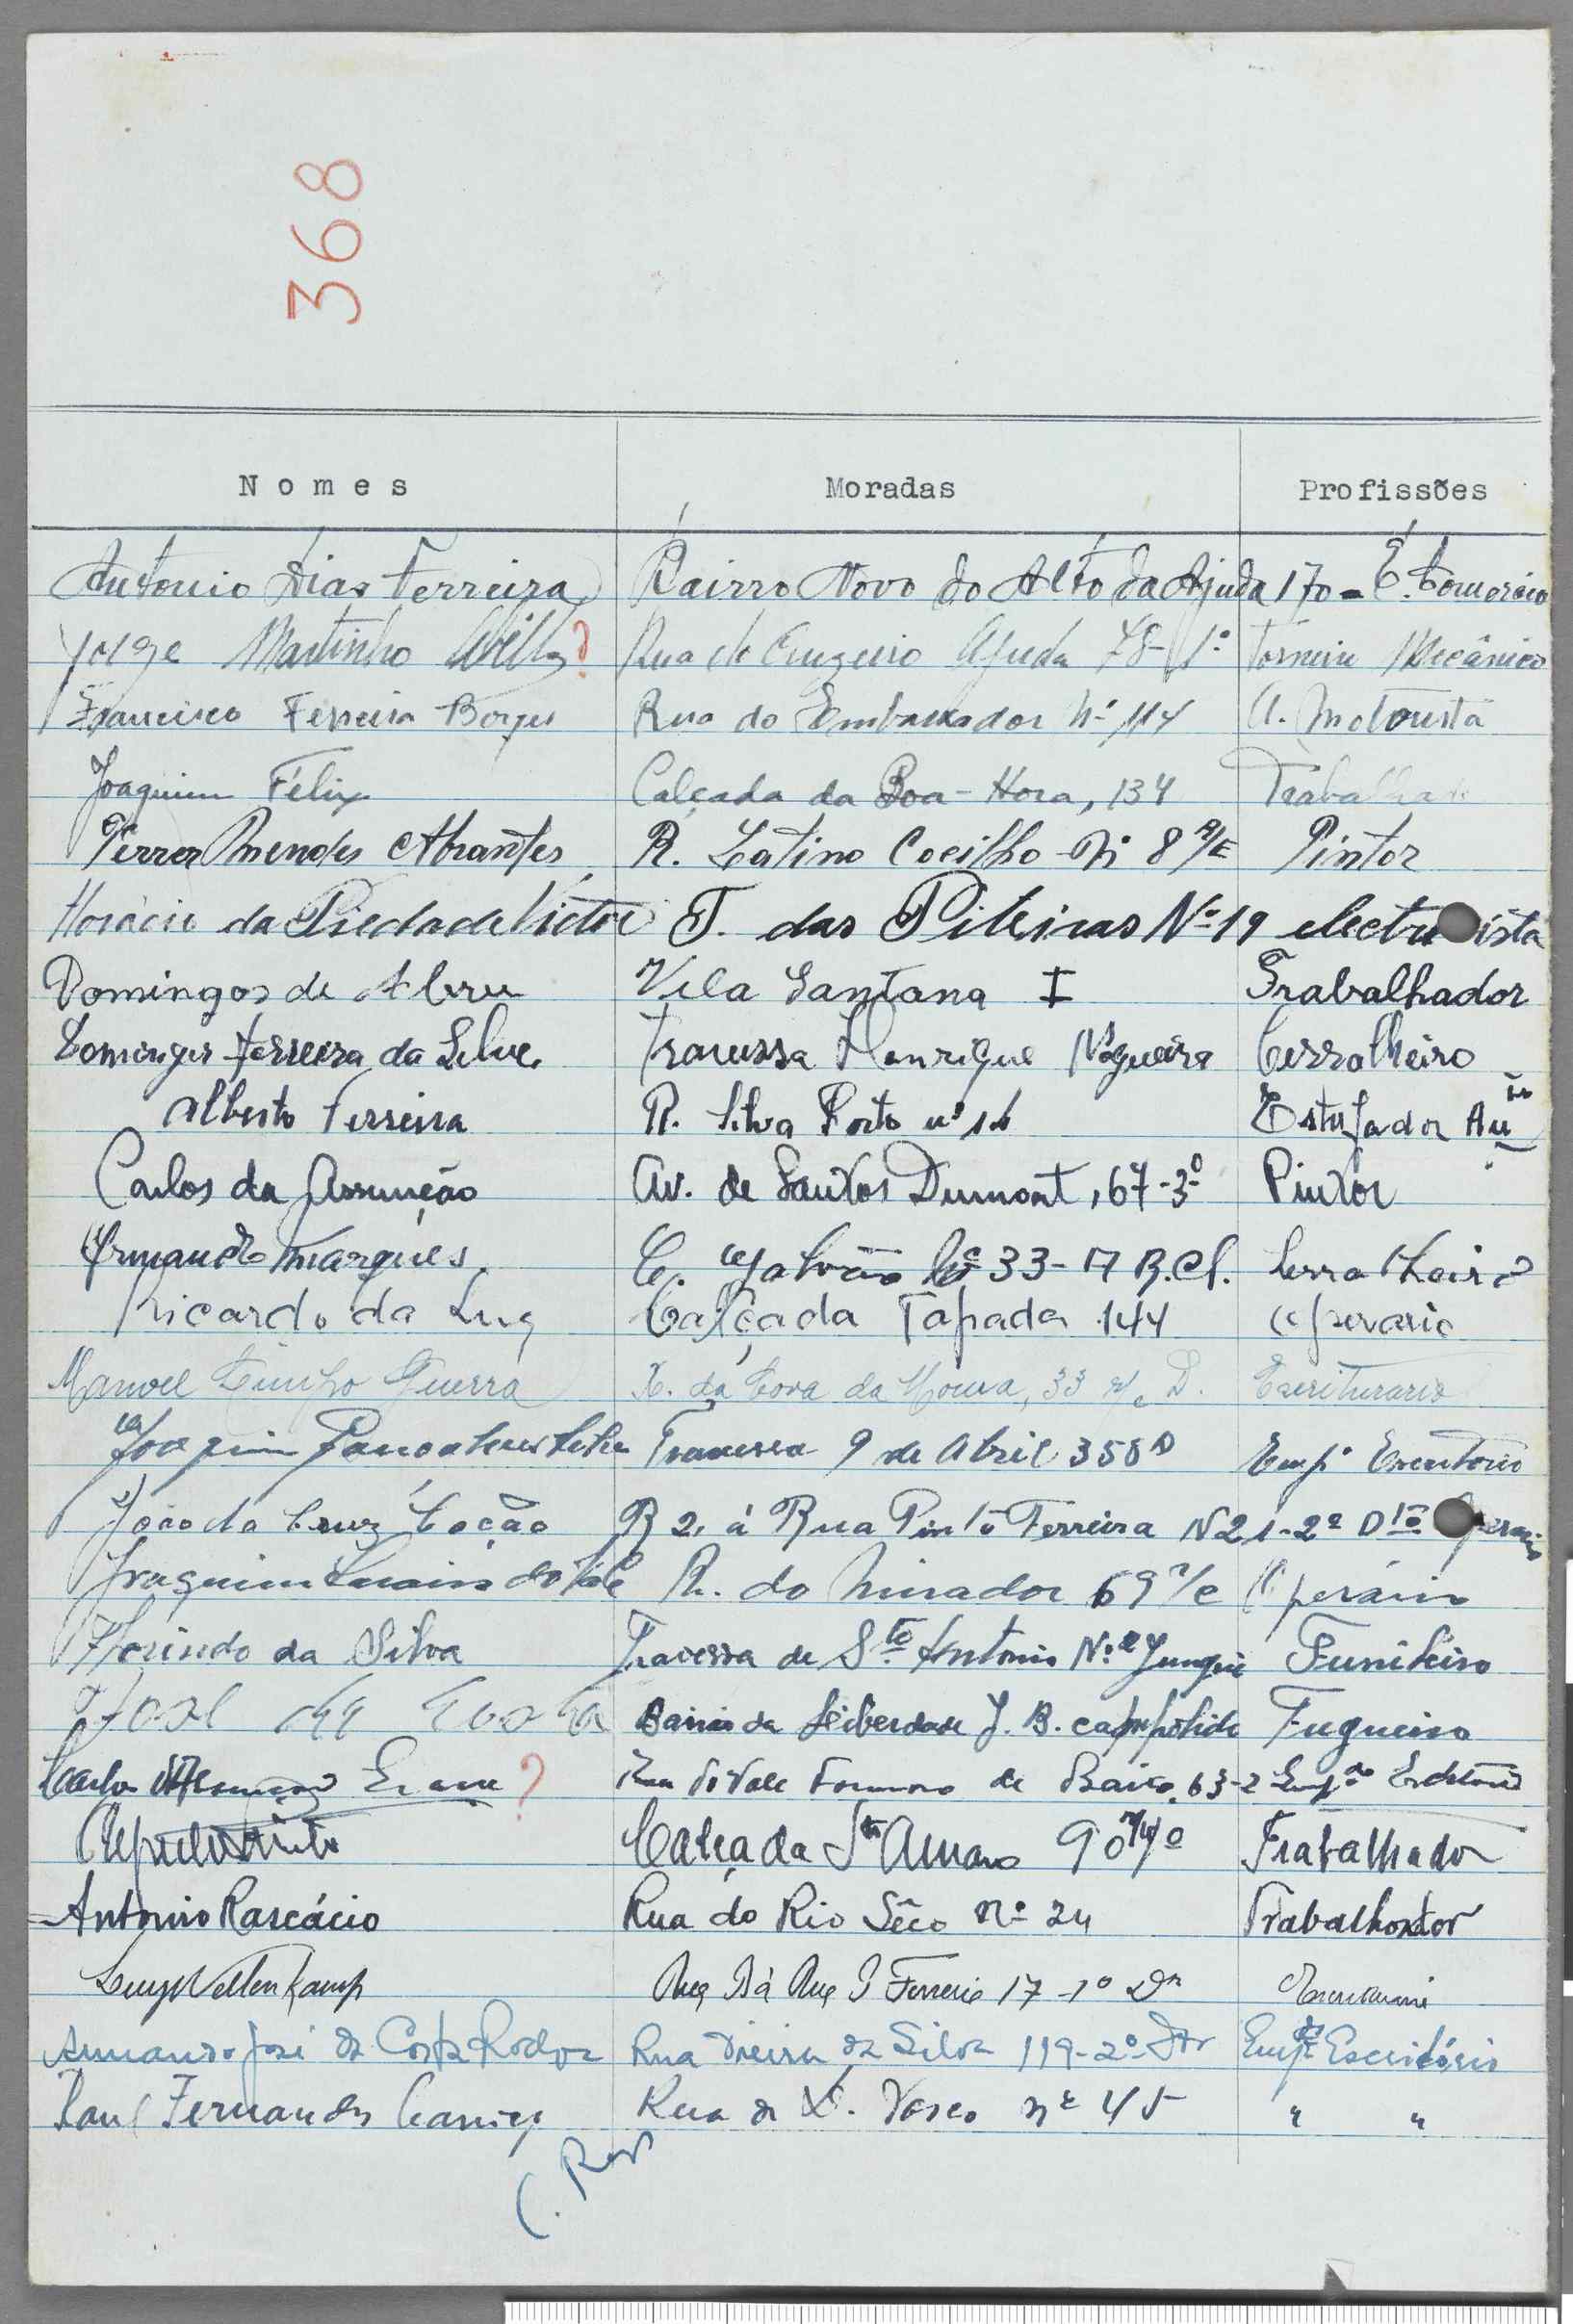 368
Nomes Moradas Profissões
Antonio Dias Ferreira Bairro Novo do Alto da Ajuda 170 - E. Comercio
Jorge Martinho ? Rua do Cruzeiro Ajuda 78-1º Torneiro Mecânico
Francisco Ferreira Borges Rua do Embaixador Nº 114 A. Motorista
Joaquim Felix Calçada da Boa-Hora, 134 Trabalhador
Ferrer Mendes Abrantes R. Latino Coeilho Nº 8 R/E Pintor
Horácio da Piedade Victor T. das Piteiras Nº 19 electricista
Domingos de Abreu Vila Santana I Trabalhador
Domingos Ferreira da Silva Travessa Henrique Nogueira Cerralheiro
Alberto Ferreira R. Silva Porto nº 16 Estufador Au
Carlos da Assunção Av. de Santos Dumont, 67-3º Pintor
Armando Marques C. Galvão 33-17 R.C. Serralheiro
Ricardo da Luz Calçada Tapada 144 operario
Manoel Guerra R. da Cova da Moura, 33 r/c D. Escriturario
Joaquim Travessa 9 de Abril 358 D Emp. Escritorio
João da Cruz Cação R 2, á Rua Pinto Ferreira N 21-2º Dto Operario
Joaquim do Vale R. do Mirador 69 r/c Operário
Florindo da Silva Travessa de Sto Antonio Nº 2 Junqueira Funileiro
José da Costa Bairro da Leiberdade J. B. Campolide Fugueiro
Carlos ? Rua do Vale Formoso de Baixo, 63-2 Emp. Escritorio
Calçada Sto Amaro 90 Trabalhador
Antonio Rascácio Rua do Rio Sêco Nº 24 Trabalhador
Rua B á Rua P Ferreira 17-1º Dº
Armando José da Costa Rua Vieira da Silva 119-2º Dto Empº Escritório
Raul Fernandes Rua de X. Vasco nº 45 " "